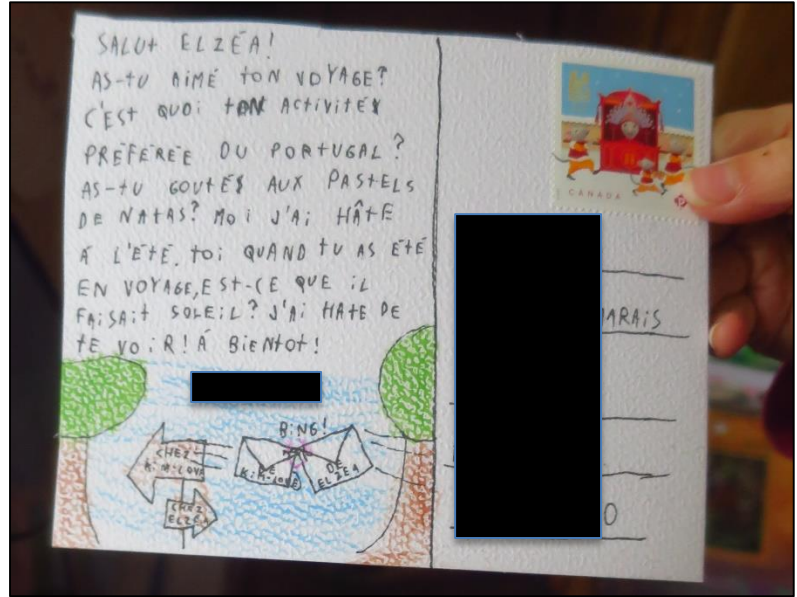 SALUT ELZÉA!
AS-TU AIMÉ TON VOYAGE?
C'EST QUOI TON ACTIVITÉ
PRÉFÉRÉE DU PORTUGAL?
AS-TU GOUTÉS AUX PASTELS
DE NATAS? MOI J'AI HÂTE
À L'ÉTÉ. TOI QUAND TU AS ÉTÉ
EN VOYAGE, EST-CE QUE IL
FAISAIT SOLEIL? J'AI HATE DE
TE VOIR! À BIENTOT!
BING!
CHEZ
KIM-LOVE
DE
KIM-LOVE
DE
ELZÉA
CHEZ
ELZÉA
CANADA
P